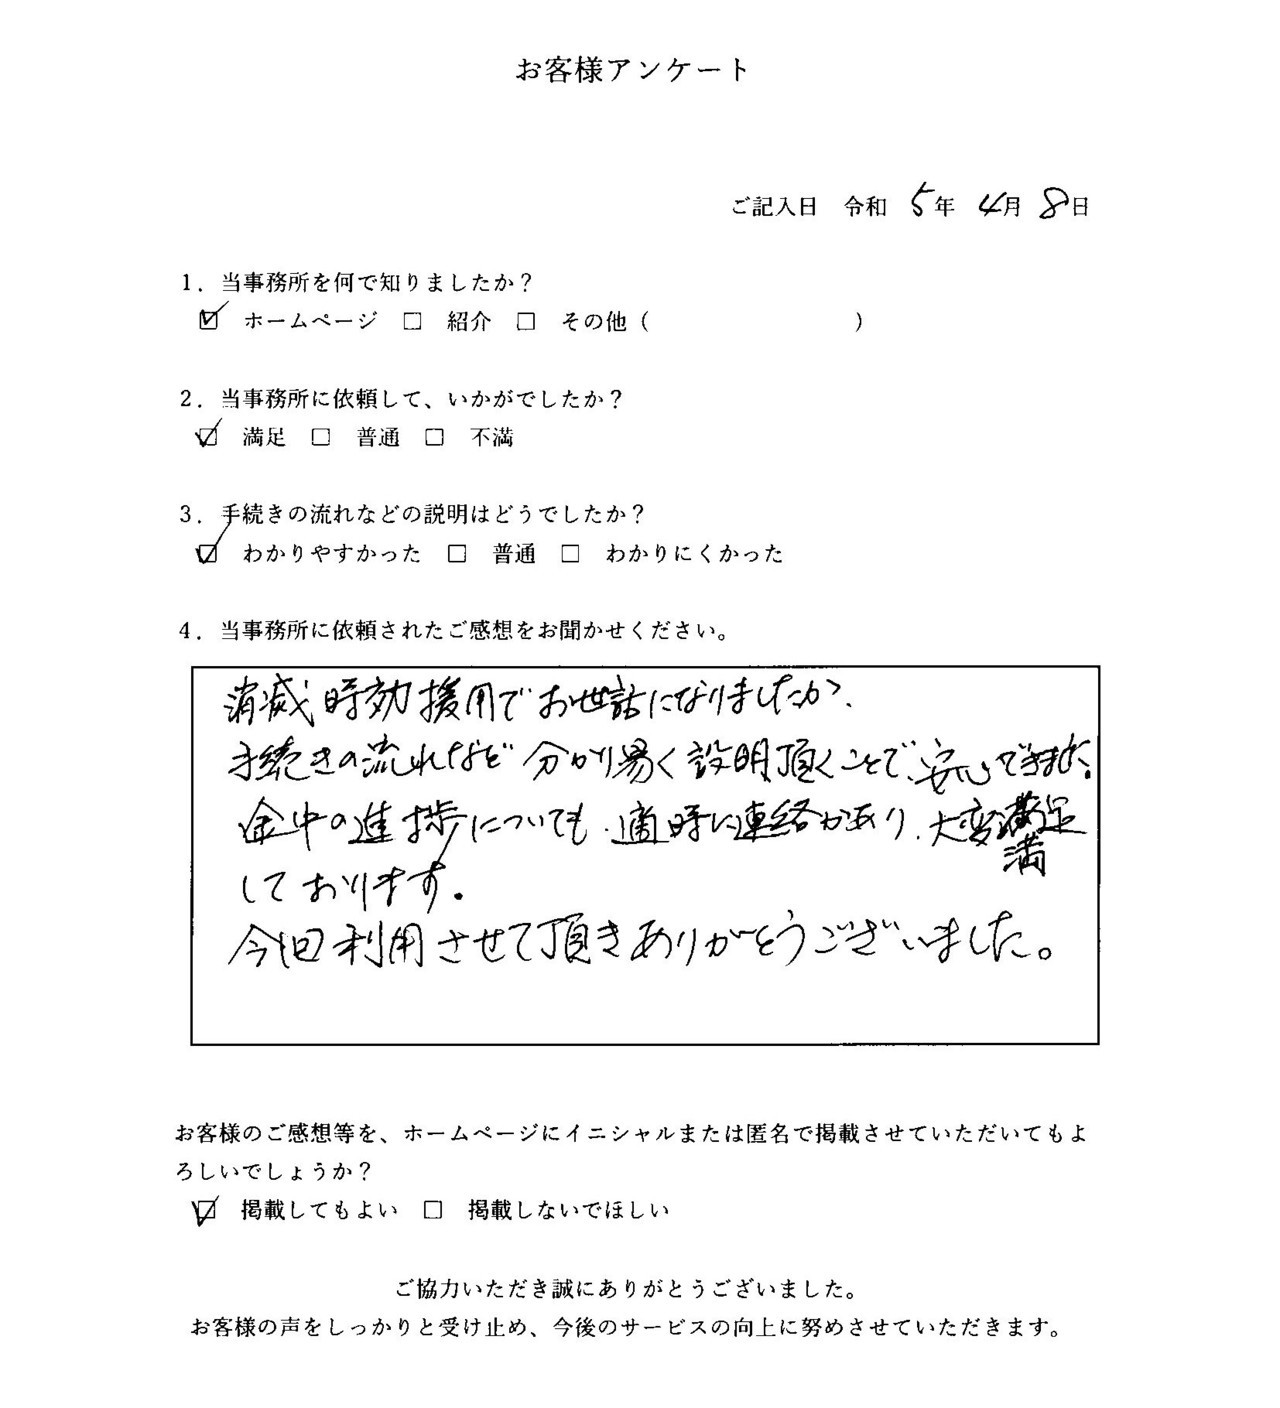 お客様アンケート
ご記入日 令和 5年 4月 8日
1．当事務所を何で知りましたか？
☑ ホームページ □ 紹介 □ その他（ ）
2．当事務所に依頼して、いかがでしたか？
☑ 満足 □ 普通 □ 不満
3．手続きの流れなどの説明はどうでしたか？
☑ わかりやすかった □ 普通 □ わかりにくかった
4．当事務所に依頼されたご感想をお聞かせください。
消滅時効援用でお世話になりましたが、
手続きの流れなど分かり易く説明頂くことで、安心できました。
途中の進捗についても、適時に連絡があり、大変満足
満
しております。
今回利用させて頂きありがとうございました。
お客様のご感想等を、ホームページにイニシャルまたは匿名で掲載させていただいてもよ
ろしいでしょうか？
☑ 掲載してもよい □ 掲載しないでほしい
ご協力いただき誠にありがとうございました。
お客様の声をしっかりと受け止め、今後のサービスの向上に努めさせていただきます。